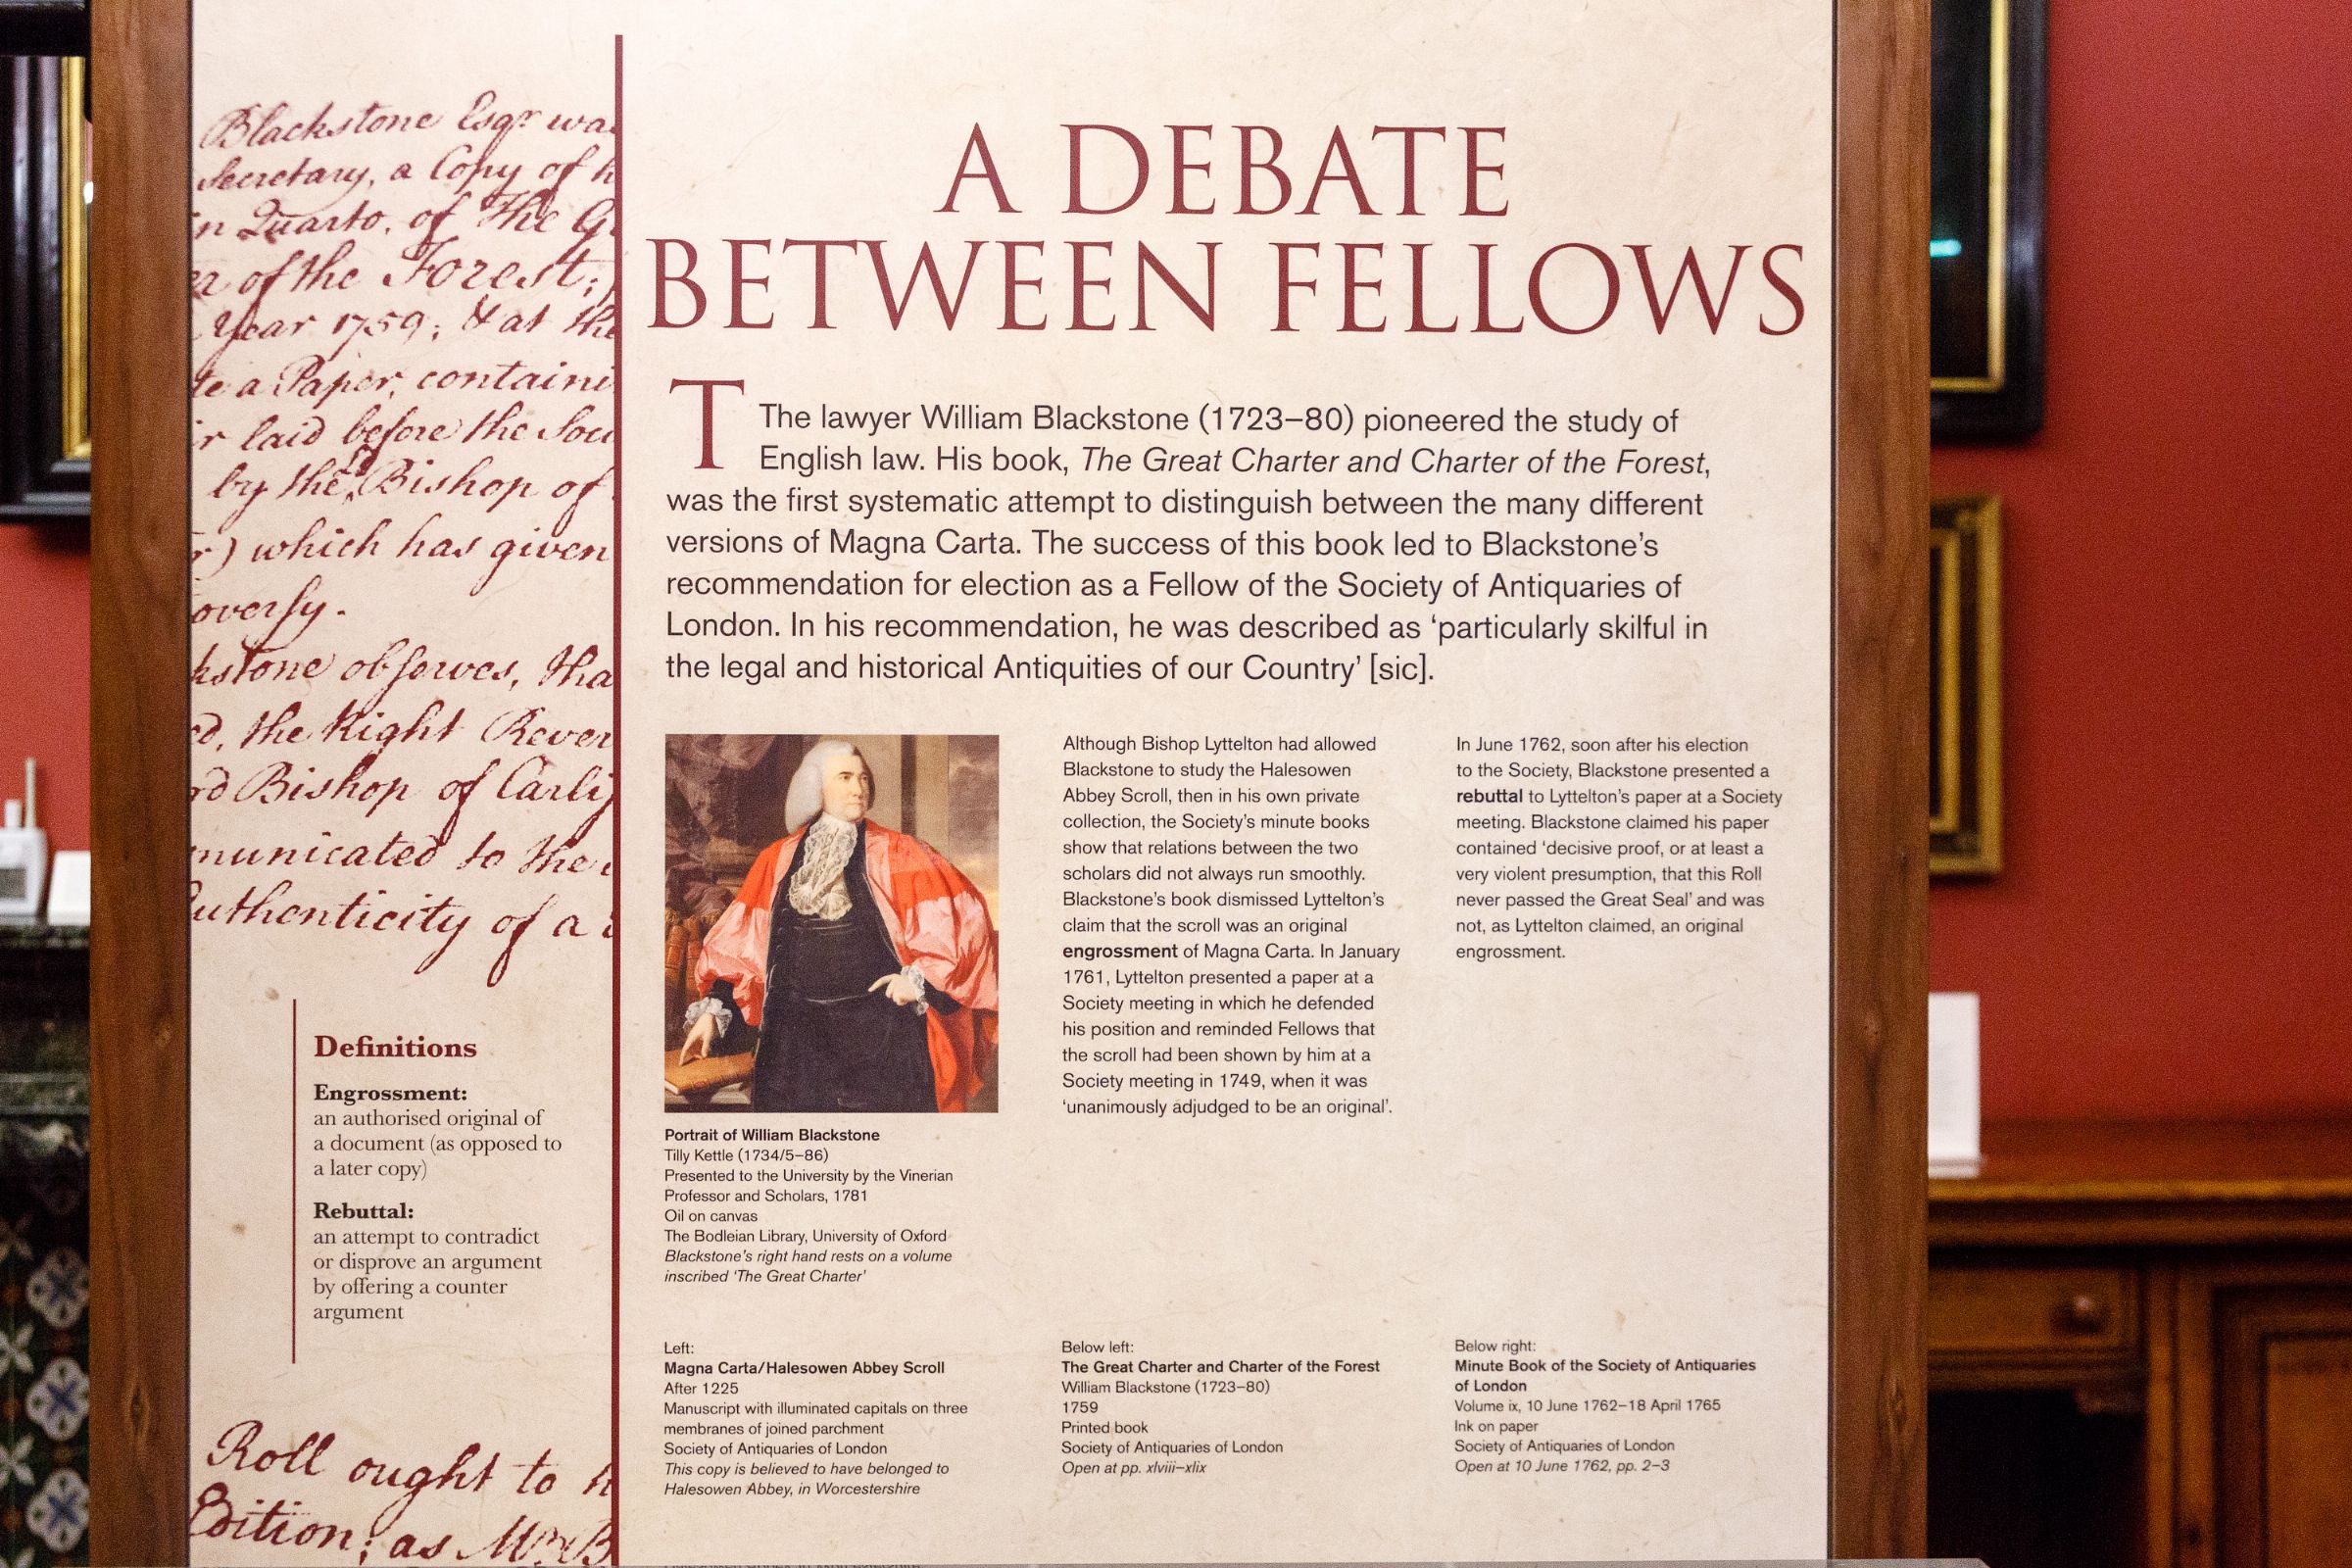 Blackstone Esqr was
Secretary, a Copy of h
in Quarto, of The G
of the Forest;
Year 1759; & at the
te a Paper, containi
laid before the Soci
by the Bishop of
which has given
oversy.
kstone observes, tha
ed, the Right Rever
rd Bishop of Carlis
municated to the
Authenticity of a
Definitions
Engrossment:
an authorised original of
a document (as opposed to
a later copy)
Rebuttal:
an attempt to contradict
or disprove an argument
by offering a counter
argument
Roll ought to h
Edition; as Mr B
A DEBATE
BETWEEN FELLOWS
T The lawyer William Blackstone (1723–80) pioneered the study of
English law. His book, The Great Charter and Charter of the Forest,
was the first systematic attempt to distinguish between the many different
versions of Magna Carta. The success of this book led to Blackstone’s
recommendation for election as a Fellow of the Society of Antiquaries of
London. In his recommendation, he was described as ‘particularly skilful in
the legal and historical Antiquities of our Country’ [sic].
Portrait of William Blackstone
Tilly Kettle (1734/5–86)
Presented to the University by the Vinerian
Professor and Scholars, 1781
Oil on canvas
The Bodleian Library, University of Oxford
Blackstone’s right hand rests on a volume
inscribed ‘The Great Charter’
Although Bishop Lyttelton had allowed
Blackstone to study the Halesowen
Abbey Scroll, then in his own private
collection, the Society’s minute books
show that relations between the two
scholars did not always run smoothly.
Blackstone’s book dismissed Lyttelton’s
claim that the scroll was an original
engrossment of Magna Carta. In January
1761, Lyttelton presented a paper at a
Society meeting in which he defended
his position and reminded Fellows that
the scroll had been shown by him at a
Society meeting in 1749, when it was
‘unanimously adjudged to be an original’.
In June 1762, soon after his election
to the Society, Blackstone presented a
rebuttal to Lyttelton’s paper at a Society
meeting. Blackstone claimed his paper
contained ‘decisive proof, or at least a
very violent presumption, that this Roll
never passed the Great Seal’ and was
not, as Lyttelton claimed, an original
engrossment.
Left:
Magna Carta/Halesowen Abbey Scroll
After 1225
Manuscript with illuminated capitals on three
membranes of joined parchment
Society of Antiquaries of London
This copy is believed to have belonged to
Halesowen Abbey, in Worcestershire
Below left:
The Great Charter and Charter of the Forest
William Blackstone (1723–80)
1759
Printed book
Society of Antiquaries of London
Open at pp. xlviii–xlix
Below right:
Minute Book of the Society of Antiquaries
of London
Volume ix, 10 June 1762–18 April 1765
Ink on paper
Society of Antiquaries of London
Open at 10 June 1762, pp. 2–3